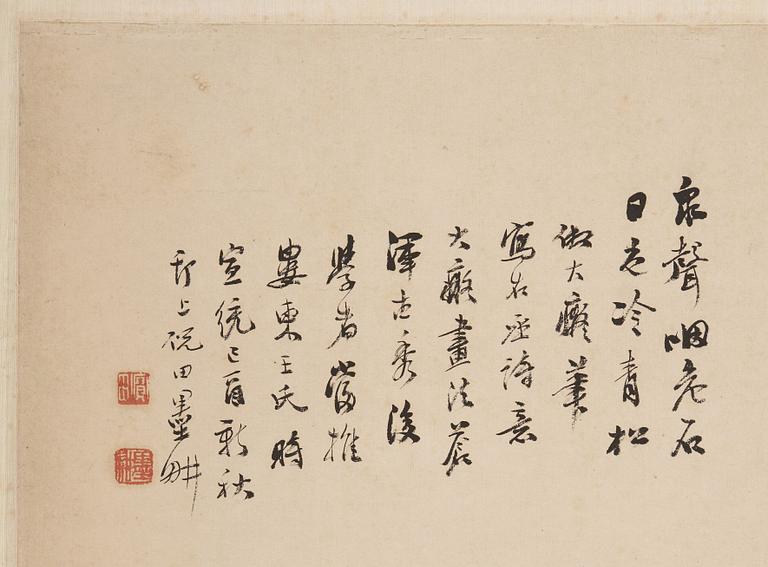 泉聲咽危石
日色冷青松
倣大癡筆
寫右丞詩意
大癡畫法蒼
渾古秀後
學者當推
婁東王氏時
宣統己酉新秋
邗上硯田墨畊